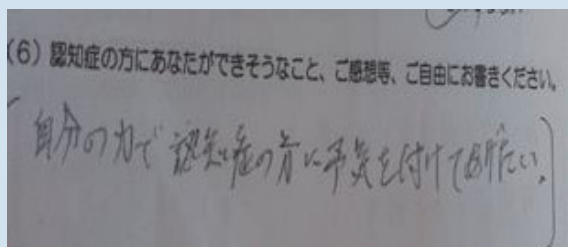 (6) 認知症の方にあなたができそうなこと、ご感想等、ご自由にお書きください。
自分の力で認知症の方に予気を付けてあげたい。